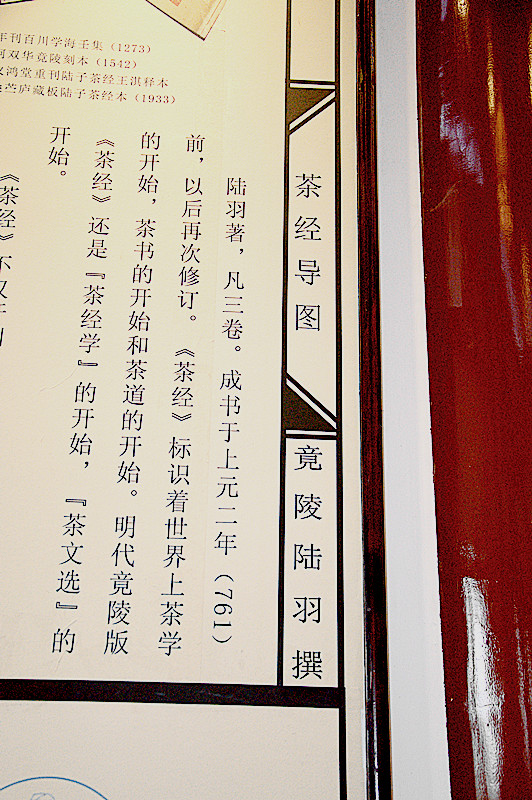 茶经导图
竟陵陆羽撰
陆羽著，凡三卷。成书于上元二年（761）
前，以后再次修订。《茶经》标识着世界上茶学
的开始，茶书的开始和茶道的开始。明代竟陵版
《茶经》还是『茶经学』的开始，『茶文选』的
开始。
《茶经》不仅
年刊百川学海壬集（1273）
柯双华竟陵刻本（1542）
鸿堂重刊陆子茶经王淇释本
庐藏板陆子茶经本（1933）